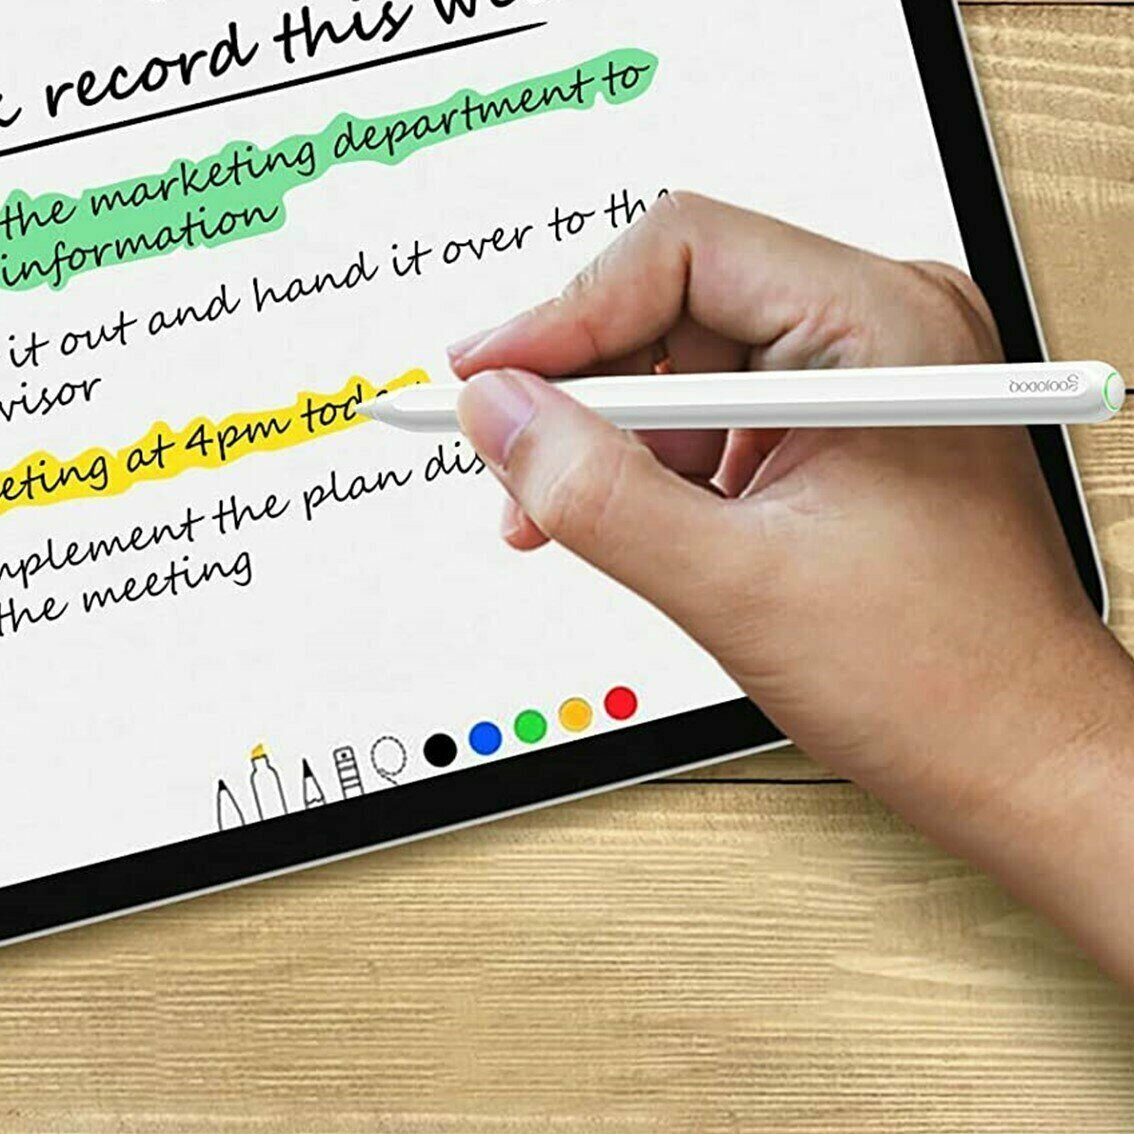 record this
the marketing department to
information
it out and hand it over to the
visor
eting at 4pm tod
mplement the plan dis
the meeting